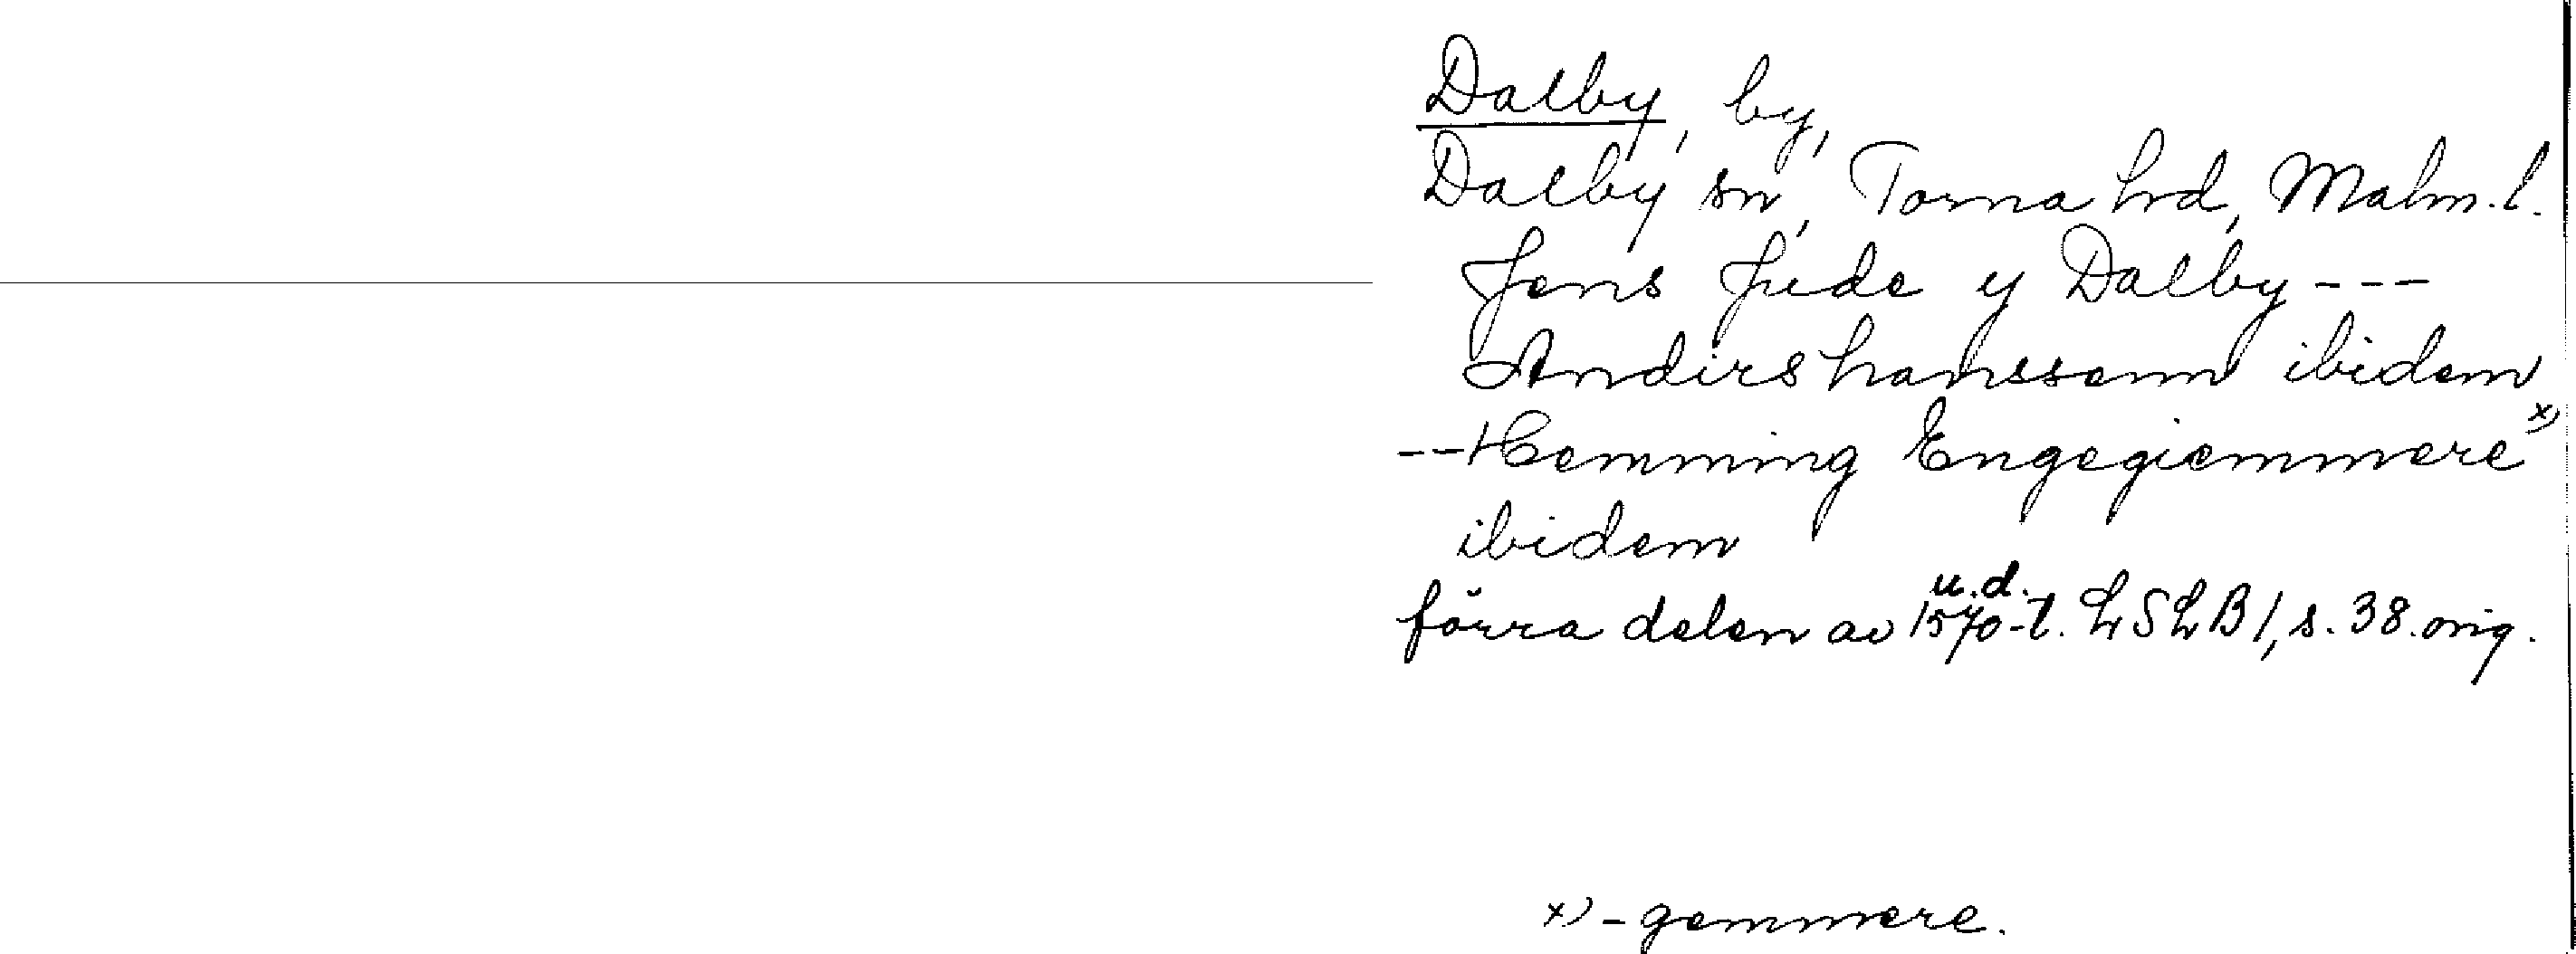 Dalby, by,
Dalby sn, Torna hrd, Malm. l.
Jens Jude y Dalby ---
Andirs hanssenn ibidem
-- Hemming Engegiemmere x)
ibidem
u.d.
förra delen av 1570-t. LSLB 1, s. 38. orig.
x) -gemmere.